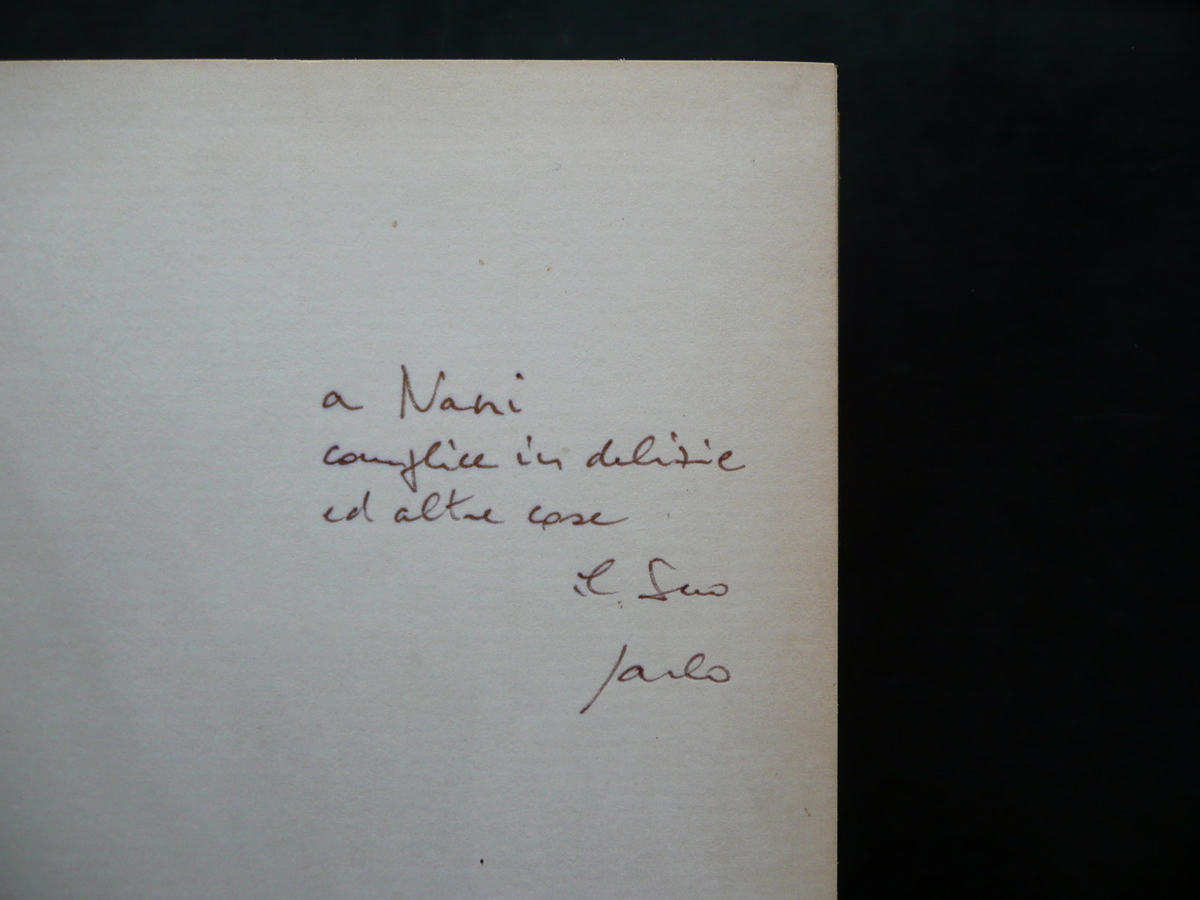 a Nani
complice in delizie
ed altre cose
il Suo